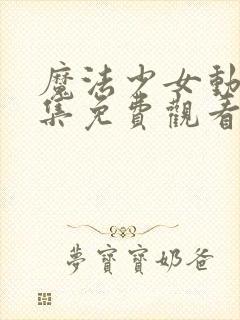 魔法少女動
集免費觀看
夢寶寶奶爸